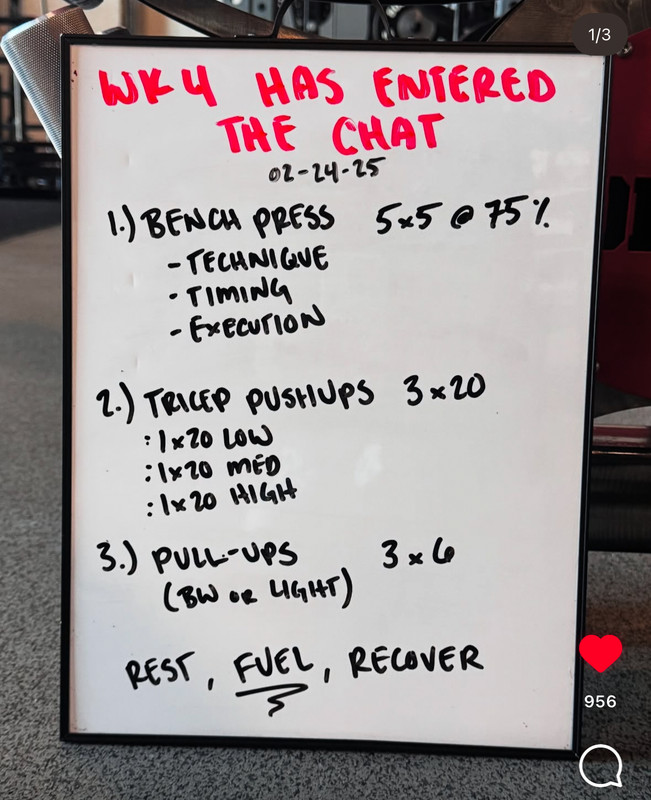 1/3
WK 4 HAS ENTERED
THE CHAT
02-24-25
1.) BENCH PRESS 5x5 @ 75%
- TECHNIQUE
- TIMING
- EXECUTION
2.) TRICEP PUSHUPS 3x20
: 1x20 LOW
: 1x20 MED
: 1x20 HIGH
3.) PULL-UPS 3x6
(BW OR LIGHT)
REST, FUEL, RECOVER
956